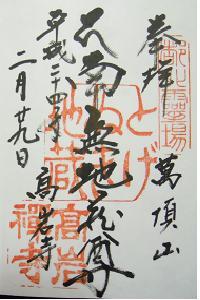 奉拝
萬頂山
南無地蔵尊
高岩寺
平成二十四年
二月廿九日
とげ
ぬき
地蔵
高岩
禅寺